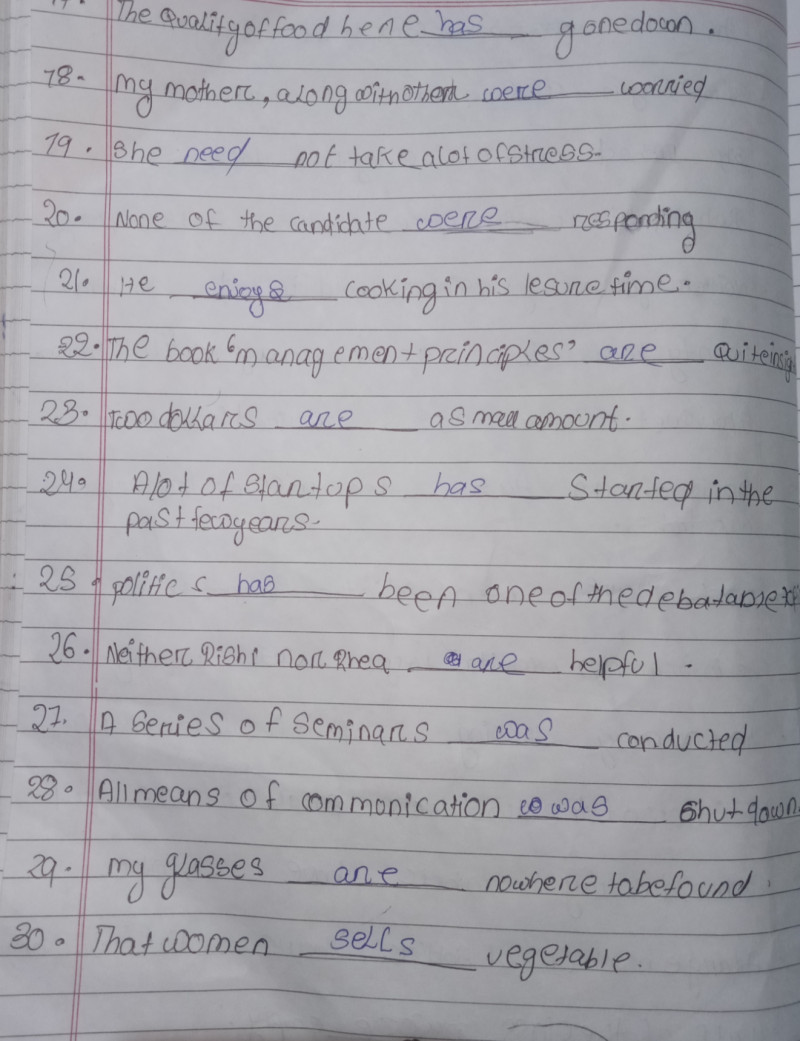 The Quality of food here has gone down.
18. My mother, along with others were worried
19. She need not take a lot of stress.
20. None of the candidate were responding
21. He enjoys cooking in his lesure time.
22. The book "management principles" are Quite
23. Two dollars are a small amount.
24. A lot of Startops has Started in the
past few years.
25. politics has been one of the debatable
26. Neither Rishi nor Rhea are helpful.
27. A Series of Seminars was conducted
28. All means of commonication was Shut down
29. my glasses are nowhere to be found.
30. That women sells vegetable.